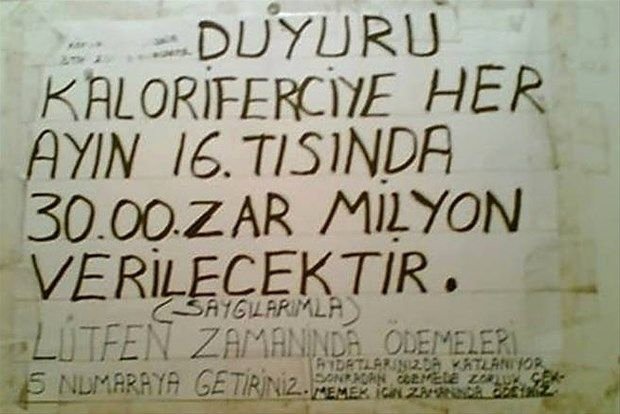 DUYURU
KALORİFERCİYE HER
AYIN 16.TISINDA
30.00.ZAR MİLYON
VERİLECEKTIR.
(SAYGILARIMLA)
LÜTFEN ZAMANINDA ÖDEMELERİ
5 NUMARAYA GETİRİNİZ.
AYDATLARINIZDA KATLANIYOR
SONRADAN ÖDEMEDE ZORLUK ÇEK-
MEMEK İÇİN ZAMANINDA ÖDEYİNİZ